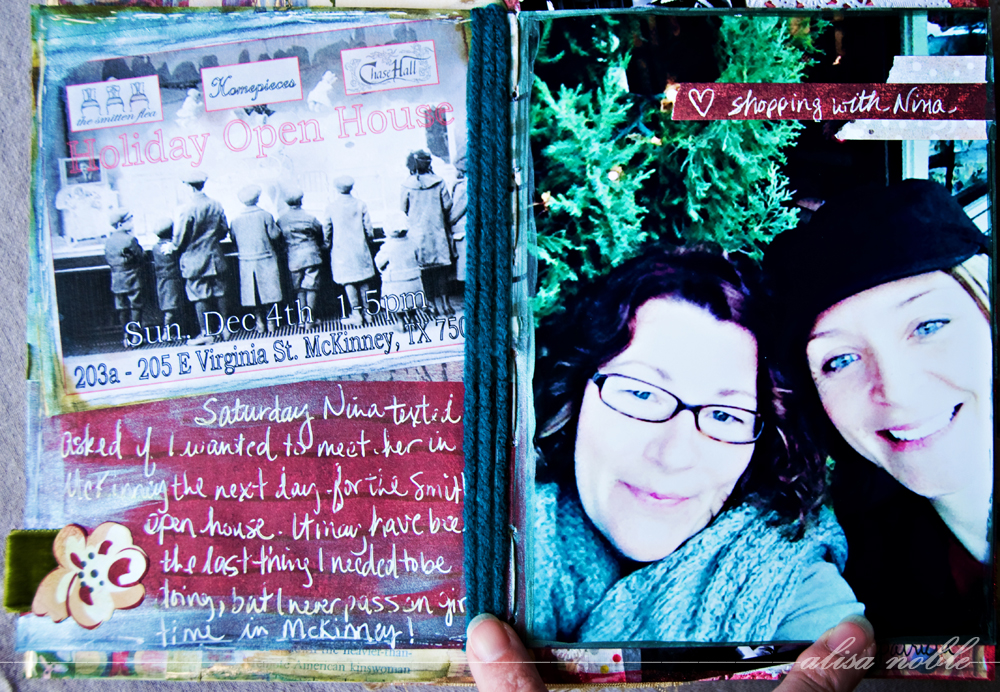 the smitten flea
Homepieces
Chase Hall
Holiday Open House
Sun. Dec 4th 1-5pm
203a - 205 E Virginia St. McKinney, TX 750
Saturday Nina texted
asked if I wanted to meet her in
McKinney the next day for the Smit
open house. It may have bee
the last thing I needed to be
doing, but I never pass on gir
time in McKinney!
American kinswoman
♡ shopping with Nina.
alisa noble